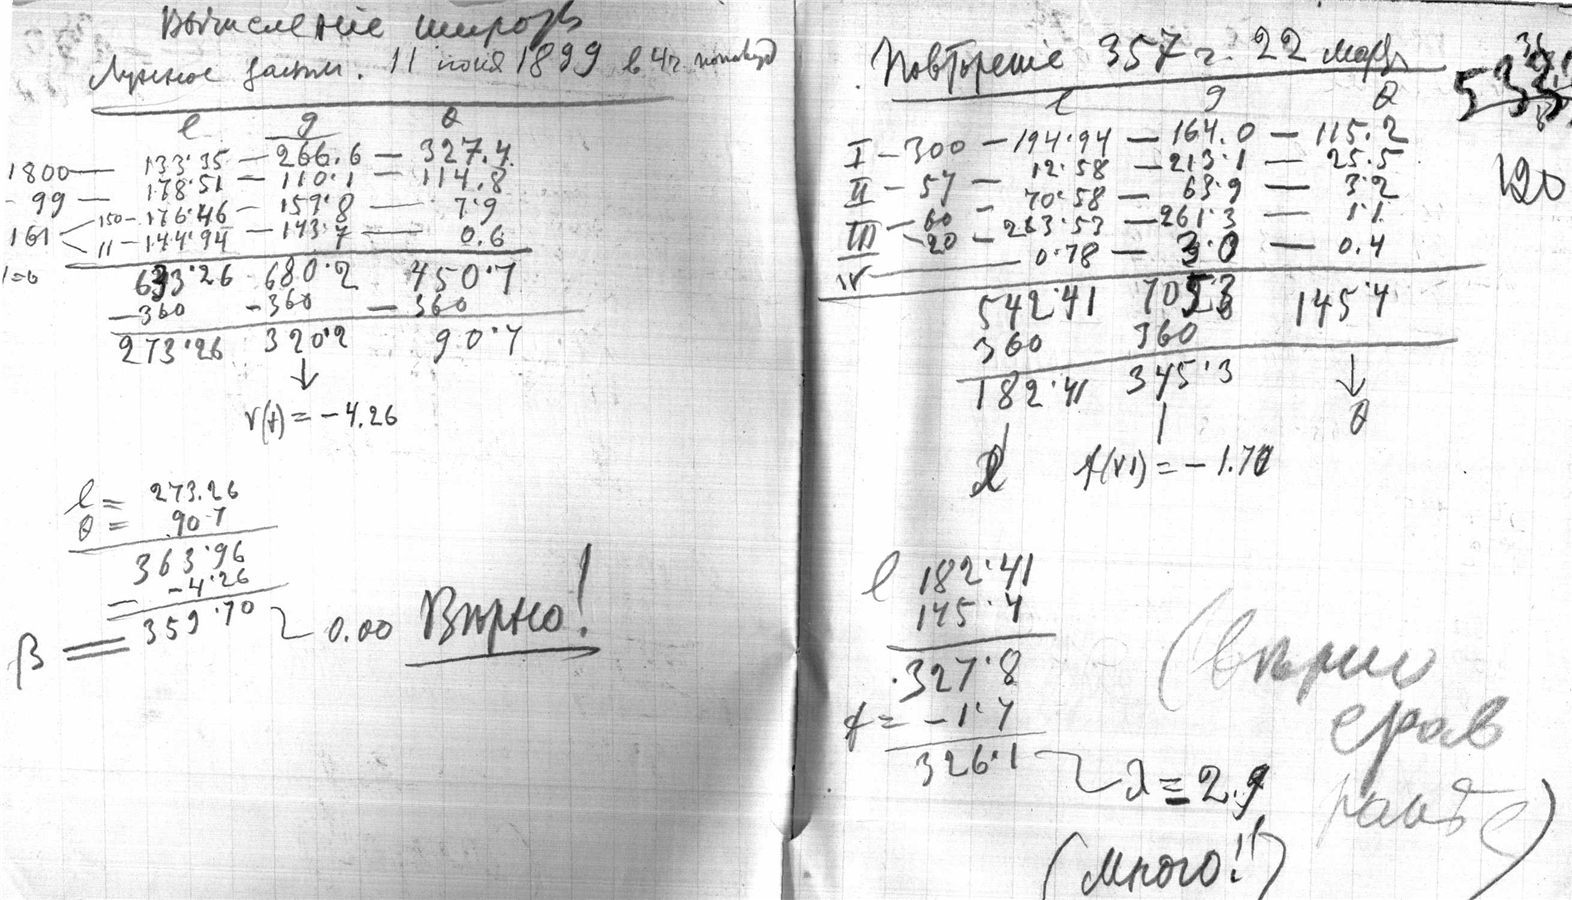 Вычисление широты
Лунное затм. 11 июня 1899 в 4 ч.
l g θ
1800 — 133.35 — 266.6 — 327.4
99 — 178.51 — 110.1 — 114.8
161 150 — 176.46 — 159.8 — 7.9
11 — 144.94 — 143.7 — 0.6
633.26 680.2 450.7
—360 -360 — 360
273.26 320.2 90.7
↓
v(t) = -4.26
l = 273.26
θ = 90.7
363.96
— -4.26
β = 359.70 0.00 Вѣрно!
Повторенiе 357 г. 22 мар
l g θ
I — 300 — 194.94 — 164.0 — 115.2
II — 57 — 12.58 — 213.1 — 25.5
III 60 — 70.58 — 63.9 — 3.2
20 — 263.53 — 261.3 — 1.1
IV — 0.78 — 3.0 — 0.4
542.41 705.3 145.4
360 360
182.41 345.3 ↓
θ
f(v1) = -1.71
l 182.41
145.4
327.8
f = -1.7
326.1
λ = 2.9
(много!!)
120